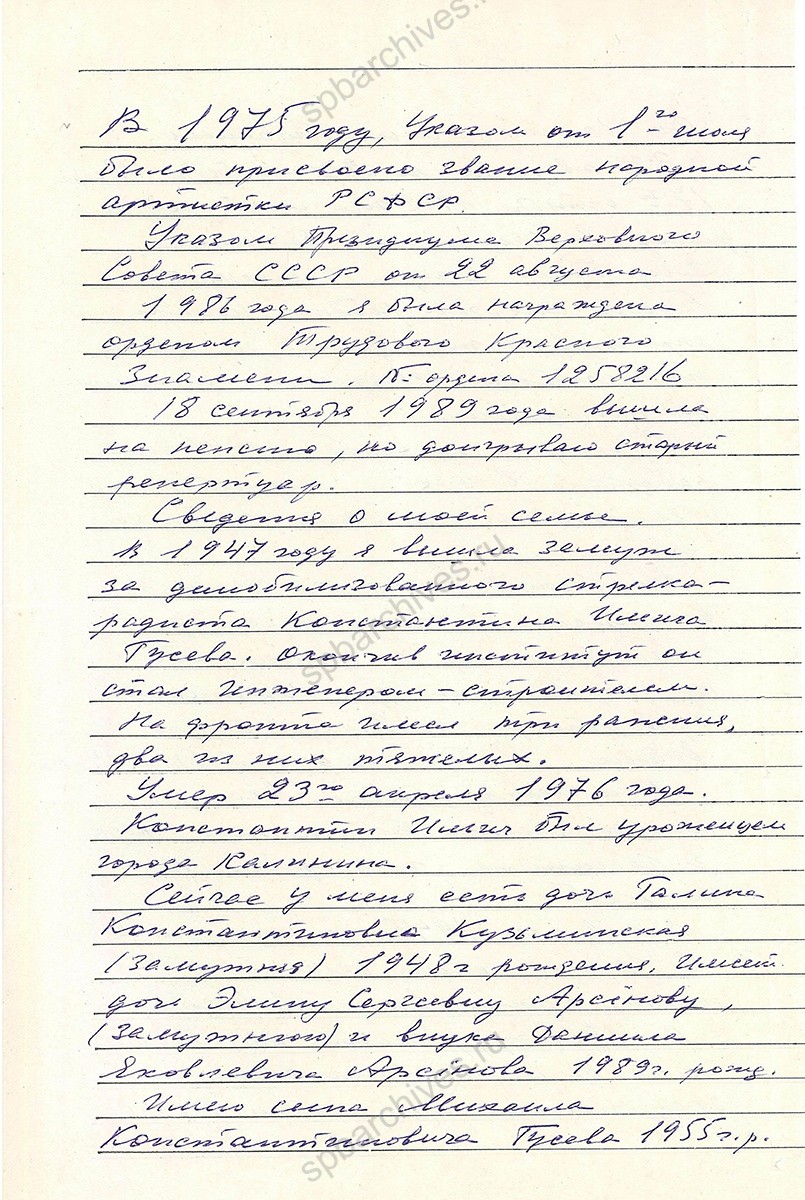 spbarchives.ru
В 1975 году, Указом от 1го июля
было присвоено звание народной
артистки РСФСР.
Указом Президиума Верховного
Совета СССР от 22 августа
1986 года я была награждена
орденом Трудового Красного
Знамени. № ордена 1258216
18 сентября 1989 года вышла
на пенсию, но доигрываю старый
репертуар.
Сведения о моей семье.
В 1947 году я вышла замуж
за демобилизованного стрелка-
радиста Константина Ильича
Гусева. Окончив институт он
стал инженером-строителем.
На фронте имел три ранения,
два из них тяжелых.
Умер 23го апреля 1976 года.
Константин Ильич был уроженцем
города Калинина.
Сейчас у меня есть дочь Галина
Константиновна Кузьминская
(замужняя) 1948 г рождения. Имеет
дочь Элину Сергеевну Арсёнову,
(замужнюю) и внука Даниила
Яковлевича Арсёнова 1989г. рожд.
Имею сына Михаила
Константиновича Гусева 1955г.р.
spbarchives.ru
spbarchives.ru